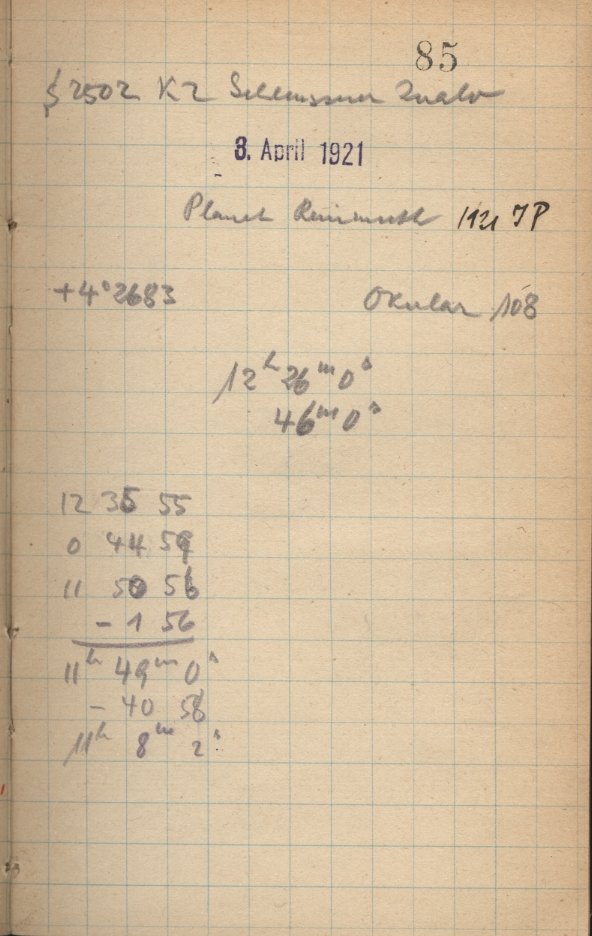 85
2502 K2 Schleussner
3. April 1921
Planet Reinmuth 1921 JP
+4°2683 Okular 108
12ʰ 26ᵐ 0ˢ
46ᵐ 0ˢ
12 35 55
0 44 59
11 50 56
- 1 56
11ʰ 49ᵐ 0ˢ
- 40 58
11ʰ 8ᵐ 2ˢ